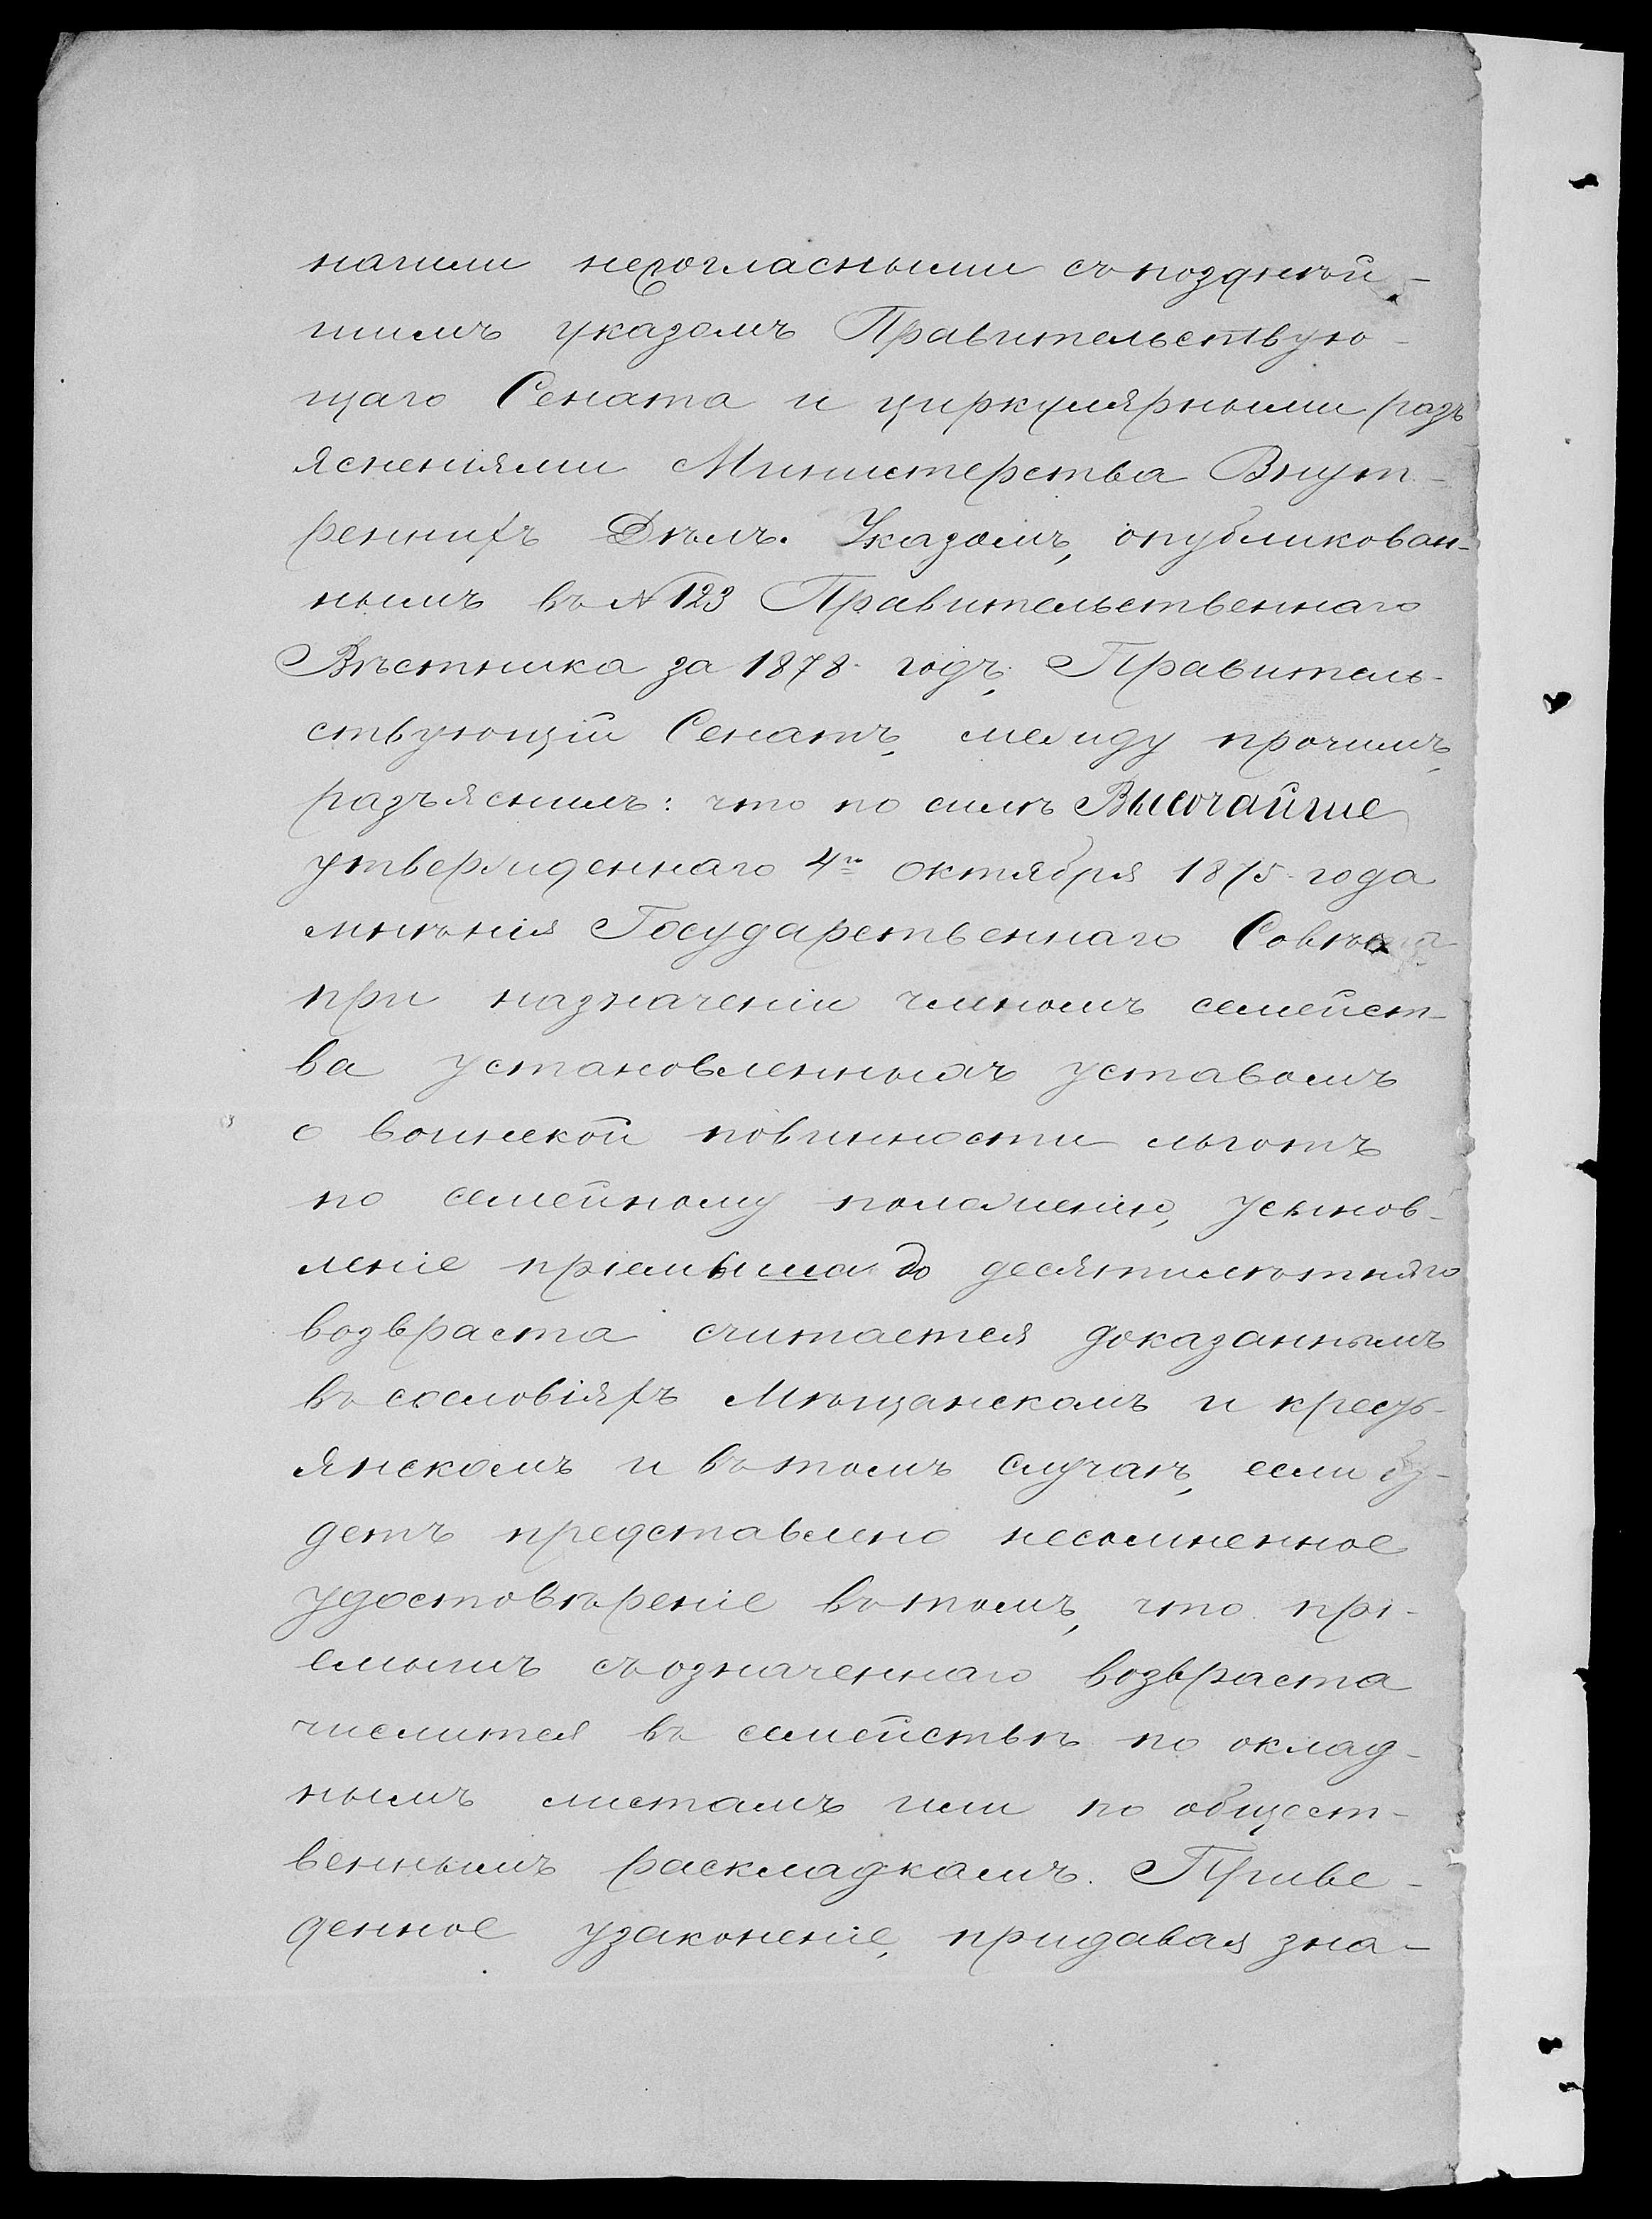 нашли несогласными съ позднѣй-
шимъ указомъ Правительствую-
щаго Сената и циркулярными разъ
ясненіями Министерства Внут-
реннихъ Дѣлъ. Указомъ, опубликован-
нымъ въ № 123 Правительственнаго
Вѣстника за 1878 годъ, Правитель-
ствующій Сенатъ, между прочимъ,
разъяснилъ: что по силѣ Высочайше
утвержденнаго 4го октября 1875 года
мнѣнія Государственнаго Совѣта
при назначеніи членомъ семейст-
ва установленныхъ уставомъ
о воинской повинности льготъ
по семейному положенію, усынов-
леніе пріемыша до десятилѣтняго
возвраста считается доказаннымъ
въ сословіяхъ Мѣщанскомъ и кресть-
янскомъ и въ томъ случаѣ, если бу-
детъ представлено несомненное
удостовѣреніе въ томъ, что прі-
емышъ съ означеннаго возвраста
числится въ семействѣ по оклад-
нымъ листамъ или по общест-
веннымъ раскладкамъ. Приве-
денное узаконеніе, придавая зна-